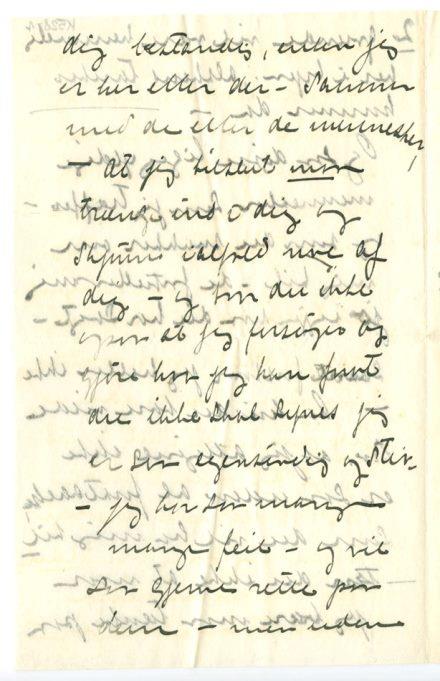 dig bestandig, enten jeg
er her eller der – sammen
med de eller de mennesker,
– at jeg tilslut må
trænge ind i dig og
skjønne ialfald noe af
dig – og tror du ikke
også at jeg forsøger og
gjøre hva jeg kan for at
du ikke skal synes jeg
er så egensindig og stiv –
– jeg har så mange
mange feil – og vil
så gjerne rette på
dem – men uden